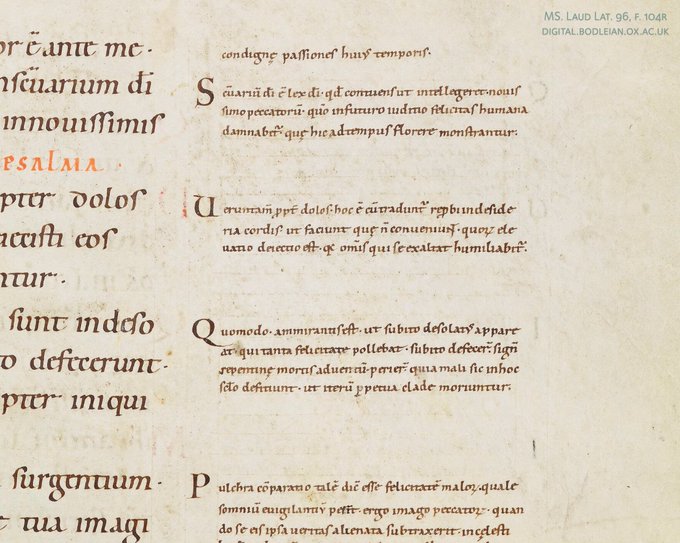 MS. LAUD LAT. 96, F. 104R
DIGITAL.BODLEIAN.OX.AC.UK
or ē ante me ·
nscūarium dī
innovissimis
PSALMA ·
pter dolos
iecisti eos
ntur ·
sunt indeso
to defecerunt ·
pter iniqui
surgentium ·
tua imagi
condignę passiones huiꝰ temporis ·
Scūariū dī ē lex dī · qđ contuens ut intellegeret novis
simo peccatorū · quō in futuro iuditio felicitas humana
damnabit᷑ · quę hic ad tempus florere monstrantur ·
Ueruntam̄ ꝓpt̄ dolos · hoc ē cū tradunt᷑ reꝓbi in deside
ria cordis ut faciunt que n̄ conveniunt · quoꝝ ele
vatio deiectio est · q̄ om̄is qui se exaltat humiliabit᷑ ·
Quomodo · ammirantis est · ut subito desolatꝰ appare
at · qui tanta felicitate pollebat · subito defecer̄ · sign̄
repentinę mortis adventū · perier̄ quia mali sic in hoc
sc̄lo defitiunt · ut iterū ꝑpetua clade moriuntur ·
Pulchra cōparatio talē dic̄ esse felicitatē maloꝝ · quale
somniū evigilantiꝰ · ergo imago peccatoꝝ · quan
do se eis ipsa veritas alienata subtraxerit · in cęlesti